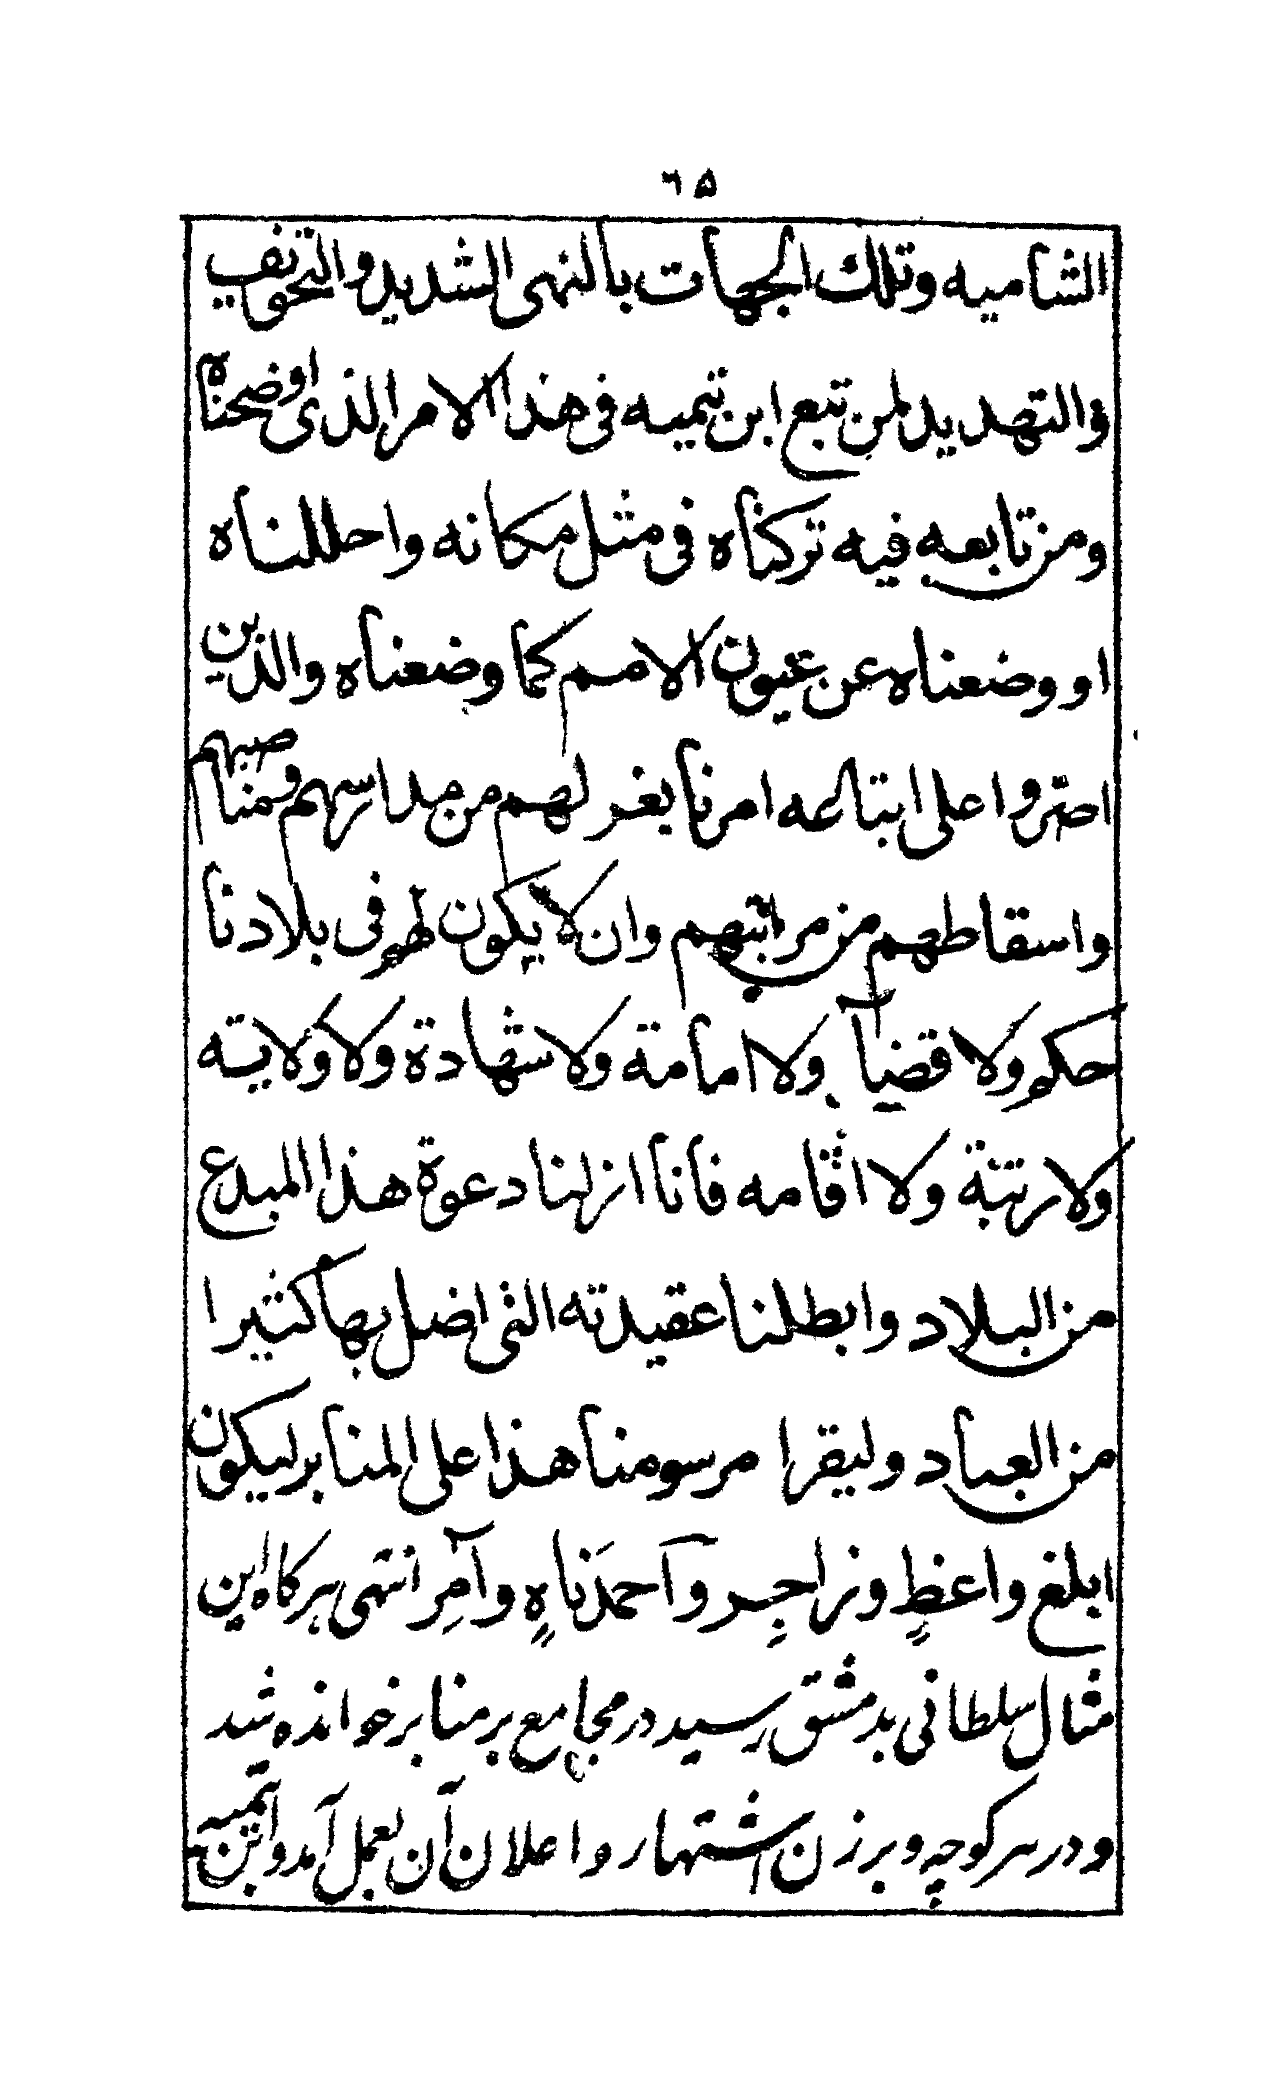 ٦٥
الشامیه وتلك الجهات بالنهی الشدید والتخویف
والتهدید لمن تبع ابن تیمیه فی هذا الامر الذی اوضحناه
ومن تابعه فیه ترکناه فی مثل مکانه واحللناه
او وضعناه عن عیون الامم کما وضعناه والذین
اصروا علی ابتالعه امرنا بغر لهم من مدارسهم ومناصبهم
واسقاطهم من مراتبهم وان لا یکون لهم فی بلادنا
حکم ولا قضآ ولا امامة ولا شهادة ولا ولایة
ولا رتبة ولا اقامه فانا ازلنا دعوة هذا المبدع
من البلاد وابطلنا عقیدته التی اضل بها کثیرا
من العباد ولیقرا مرسومنا هذا علی المنابر لیکون
ابلغ واعظٍ وزاجرٍ وآحمدَناهٍ وآمِر انتهی هرکاه این
مثال سلطانی بدمشق رسید در مجامع بر منابر خوانده شد
ودر هر کوچه وبرزن اشتهار واعلان آن بعمل آمد وابن تیمیه